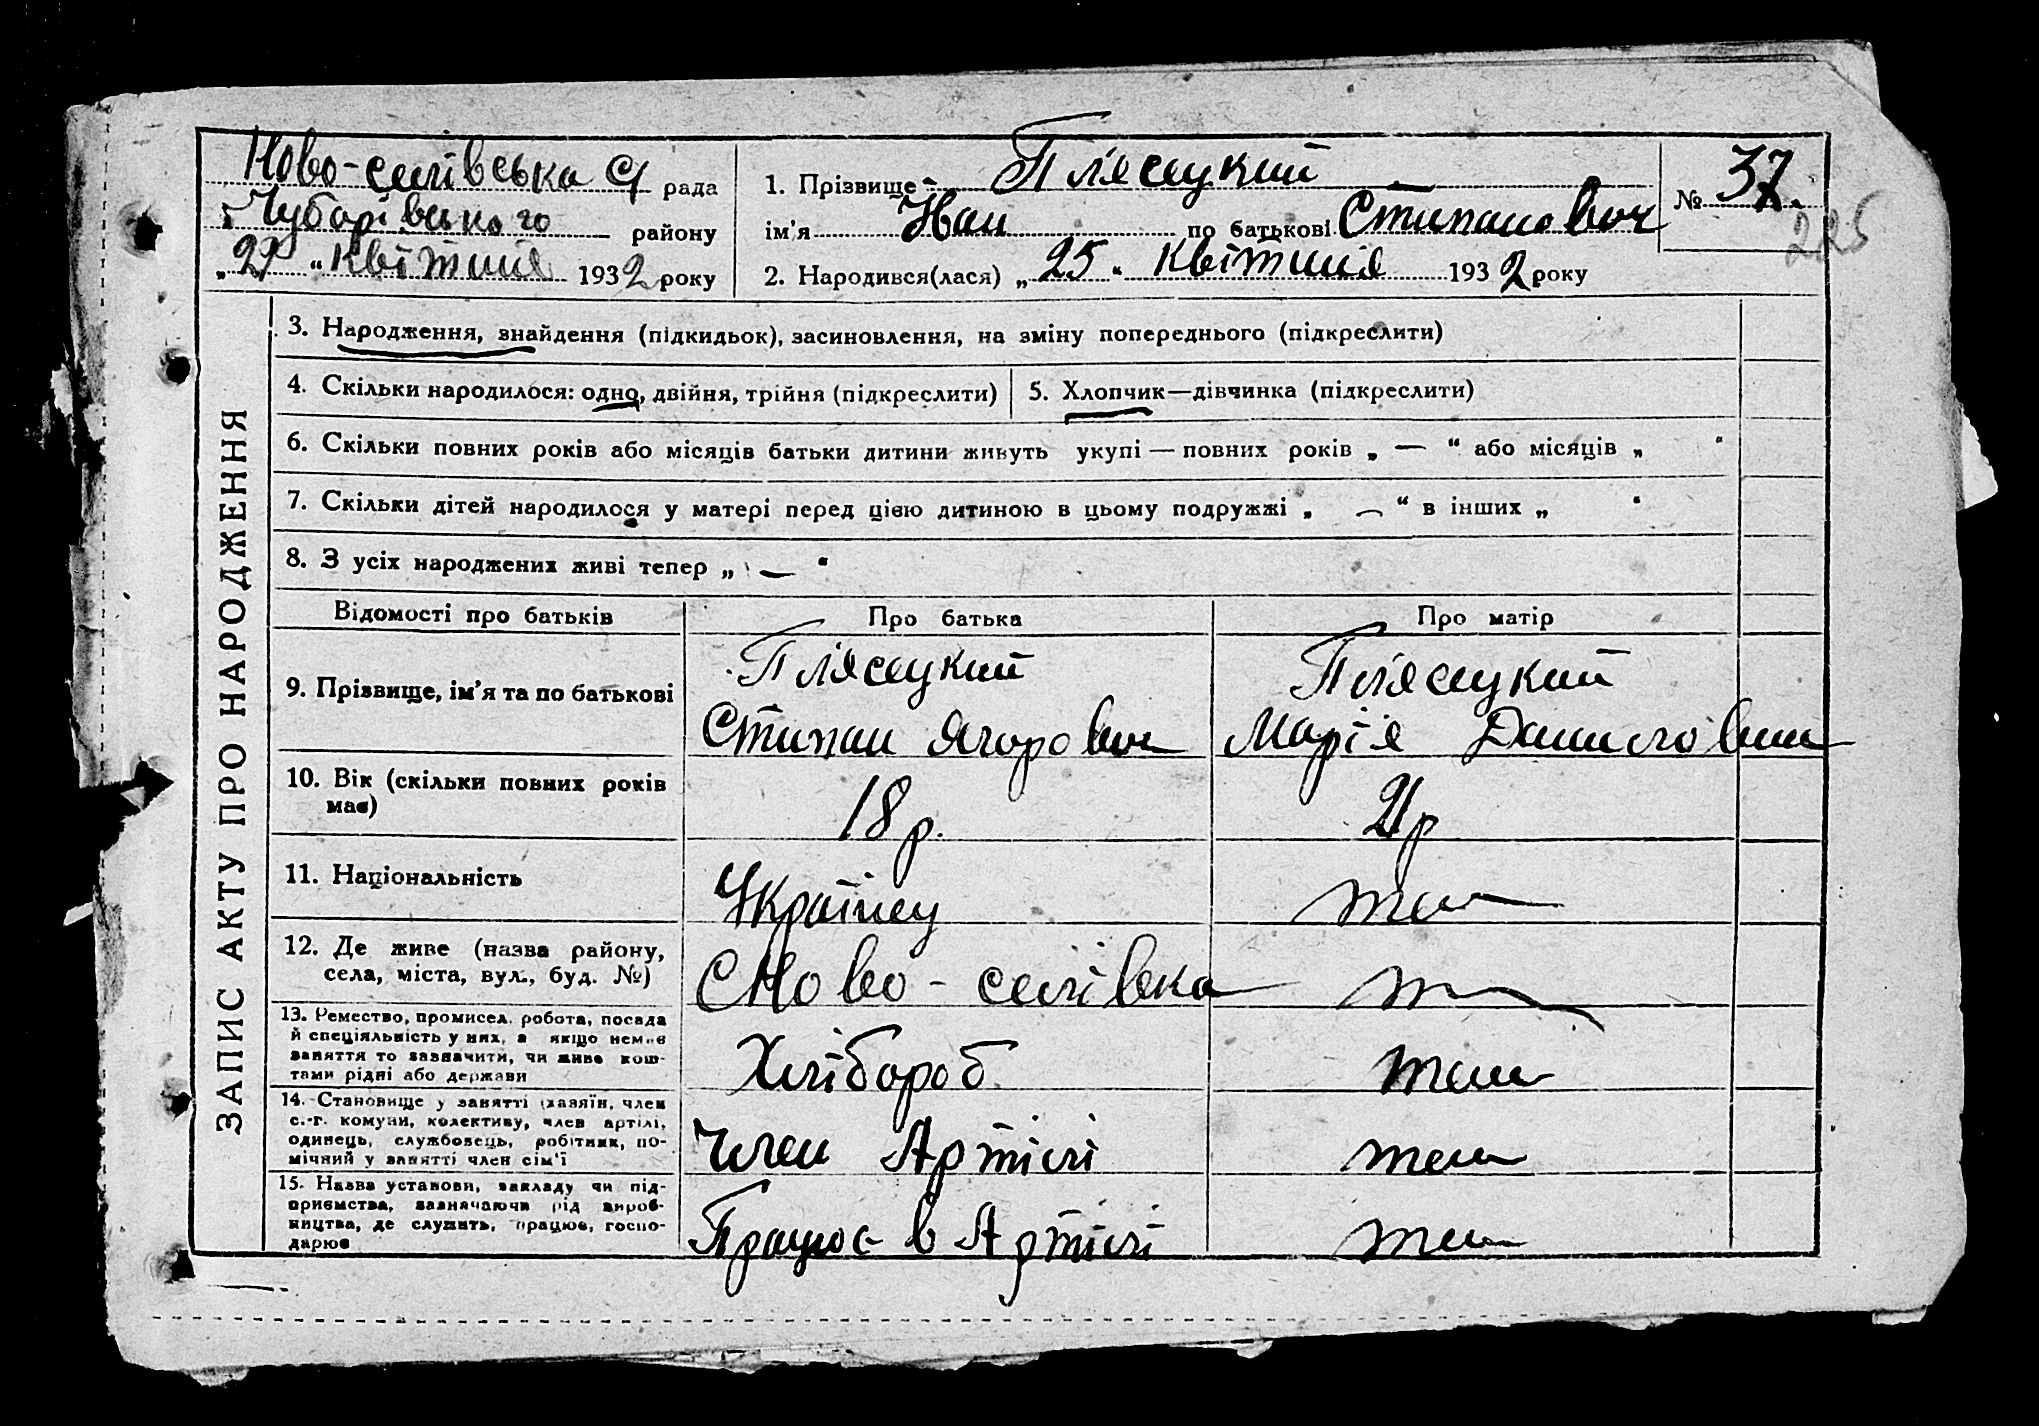 Ново-селівська С/ рада
Чубарівського району
„ 27 “ квітня 1932 року
1. Прізвище Плясецкий
ім'я Иван по батькові Стипанович
2. Народився(лася) „ 25 “ квітния 1932 року
№ 37.
225
ЗАПИС АКТУ ПРО НАРОДЖЕННЯ
3. Народження, знайдення (підкидьок), засиновлення, на зміну попереднього (підкреслити)
4. Скільки народилося: одно, двійня, трійня (підкреслити)
5. Хлопчик—дівчинка (підкреслити)
6. Скільки повних років або місяців батьки дитини живуть укупі — повних років „ — “ або місяців „ “
7. Скільки дітей народилося у матері перед цією дитиною в цьому подружжі „ — “ в інших „ “
8. З усіх народжених живі тепер „ — “
Відомості про батьків
Про батька
Про матір
9. Прізвище, ім'я та по батькові
Плясецкий
Стипан Ягорович
Плясецкий
Марія Даниловна
10. Вік (скільки повних років
має)
18 р.
21 р
11. Національність
Українец
тоже
12. Де живе (назва району,
села, міста, вул., буд. №)
С Ново-селівка
13. Ремество, промисел, робота, посада
й спеціяльність у них, а якщо немає
заняття то зазначити, чи живе кош-
тами рідні або держави
Хлібороб
14. Становище у занятті (хазяїн, член
с.-г. комуни, колективу, член артілі,
одинець, службовець, робітник, по-
мічний у занятті член сім'ї
Член Артілі
15. Назва установи, закладу чи під-
приємства, зазначаючи рід вироб-
ництва, де служить, працює, госпо-
дарює
Працює в Артілі